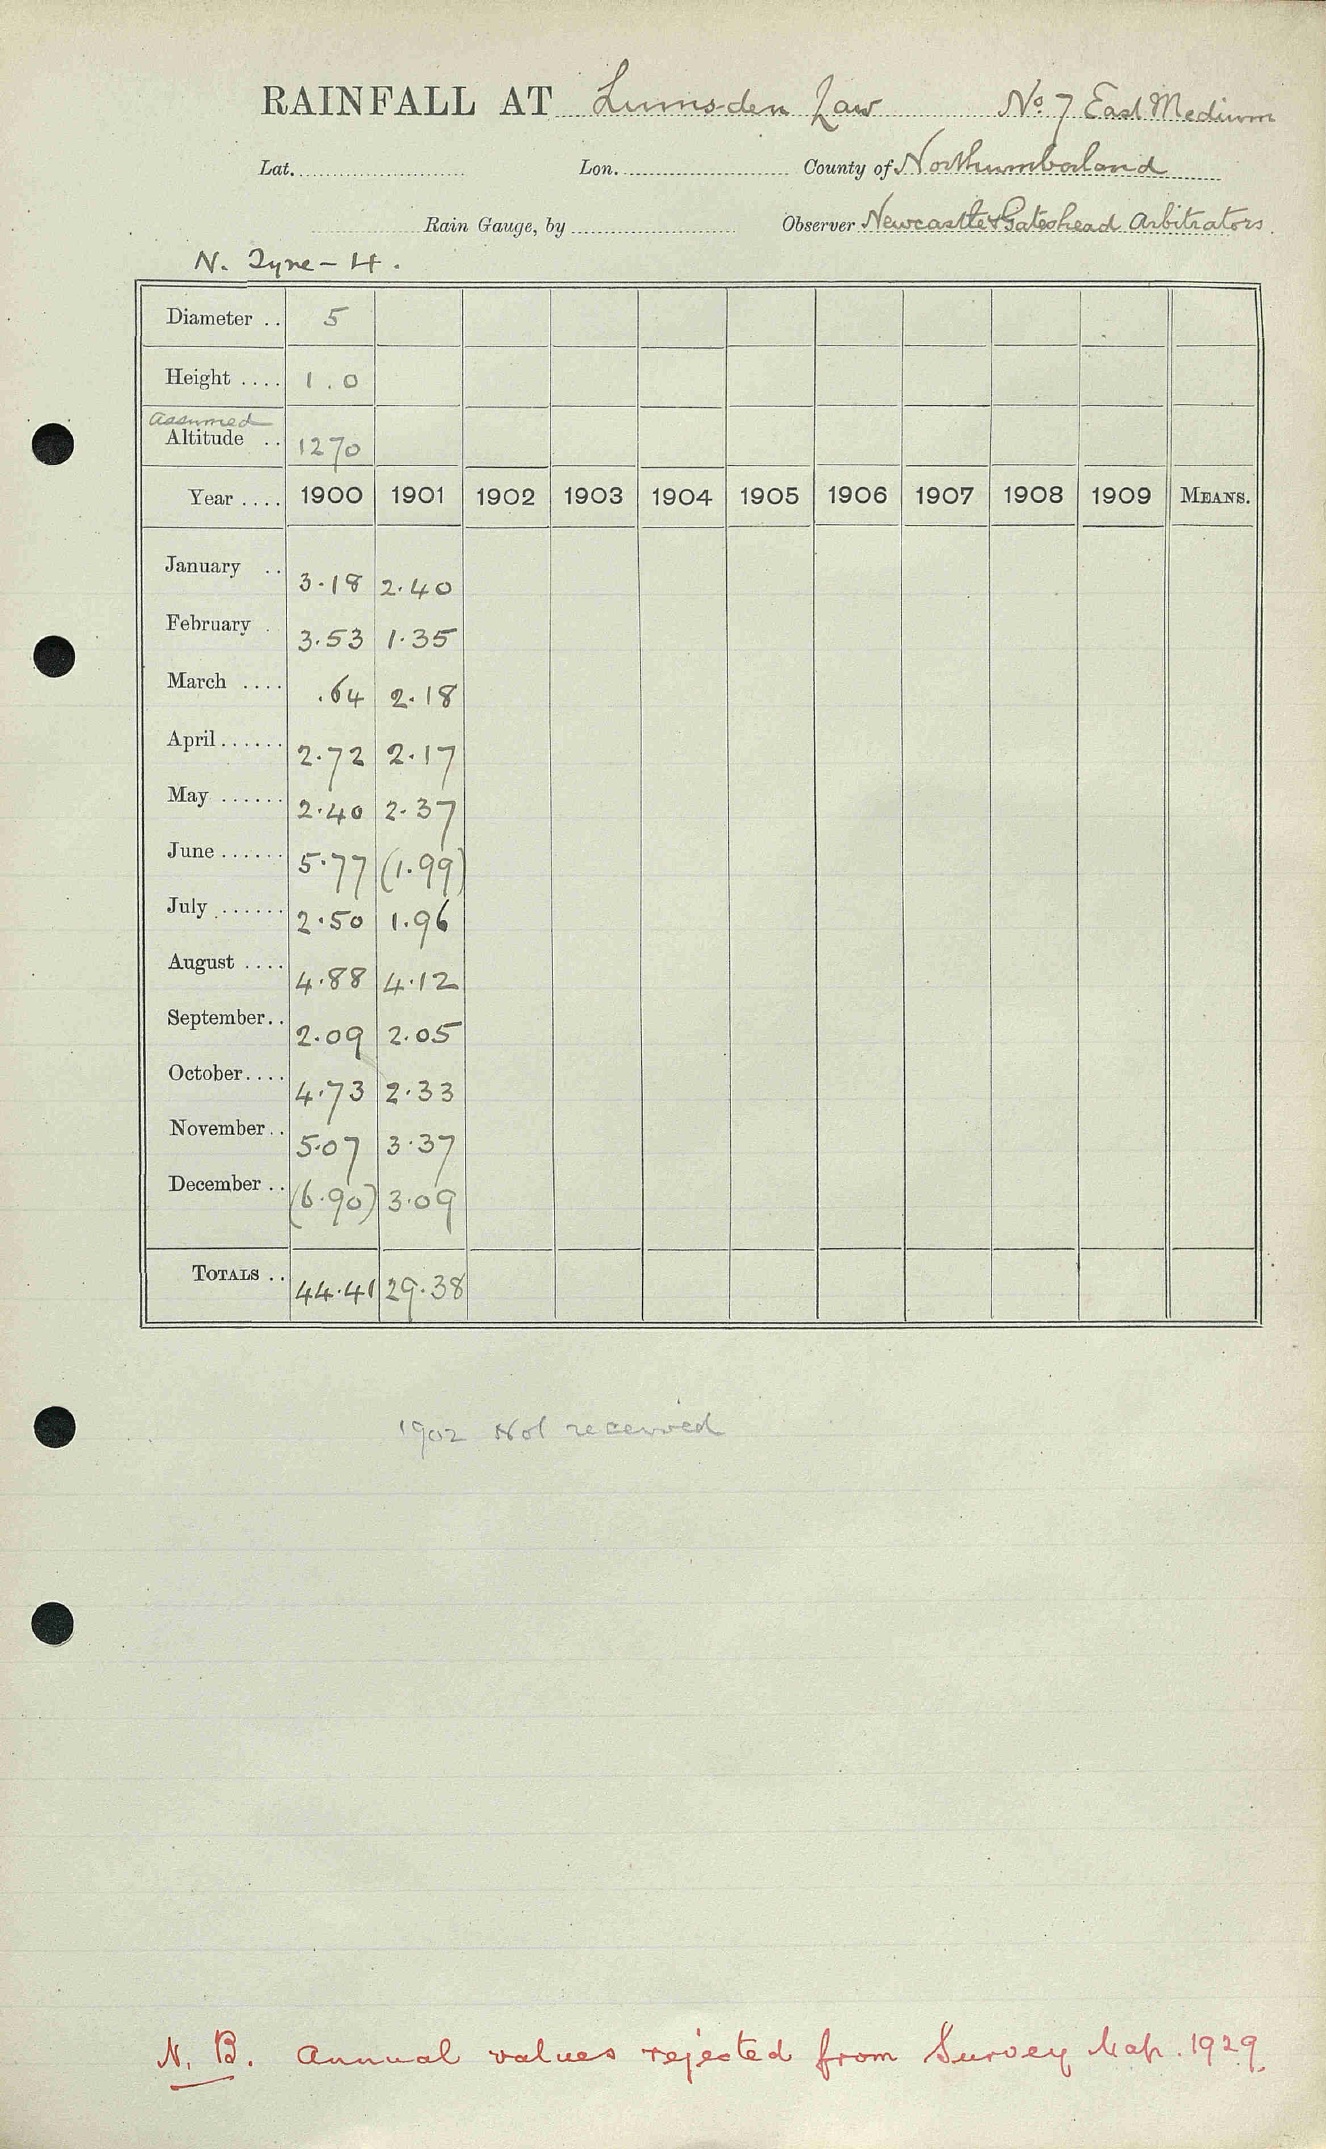 RAINFALL AT Lumsden Law No. 7 East Medium
Lat. Lon. County of Northumberland
Rain Gauge, by Observer Newcastle & Gateshead Arbitrators.
N. Tyne – 4.
Diameter .. 5
Height .... 1.0
Assumed
Altitude .. 1270
Year .... 1900 1901 1902 1903 1904 1905 1906 1907 1908 1909 MEANS.
January .. 3.18 2.40
February . 3.53 1.35
March .... .64 2.18
April ...... 2.72 2.17
May ...... 2.40 2.37
June ...... 5.77 (1.99)
July ...... 2.50 1.96
August .... 4.88 4.12
September .. 2.09 2.05
October .... 4.73 2.33
November .. 5.07 3.37
December .. (6.90) 3.09
TOTALS .. 44.41 29.38
1902 Not received
N. B. Annual values rejected from Survey Map. 1929.